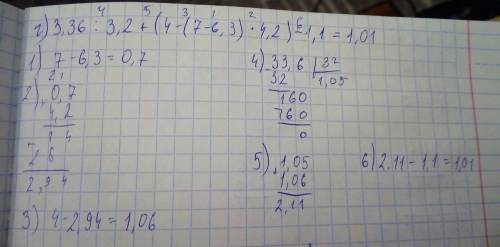 4 5 3 1 2 6
г) 3,36 : 3,2 + (4 - (7 - 6,3) · 4,2) - 1,1 = 1,01
1) 7 - 6,3 = 0,7
2) 0,7
4,2
1 4
2 8
2,9 4
3) 4 - 2,94 = 1,06
4) 33,6 | 32
32 1,05
160
160
0
5) 1,05
1,06
2,11
6) 2,11 - 1,1 = 1,01